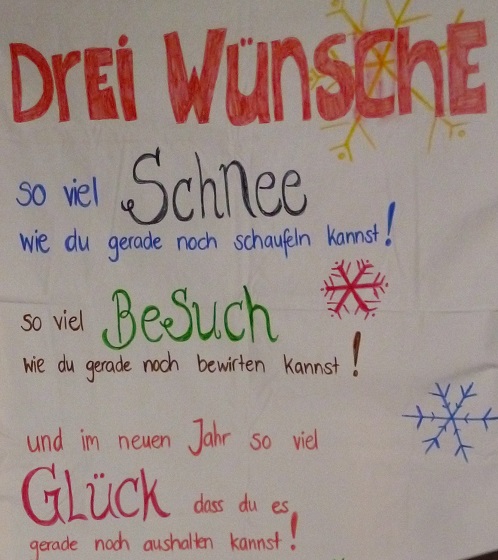 DREI WÜNSCHE
so viel Schnee
wie du gerade noch schaufeln kannst!
so viel BeSuch
wie du gerade noch bewirten kannst!
und im neuen Jahr so viel
GLücK dass du es
gerade noch aushalten kannst!